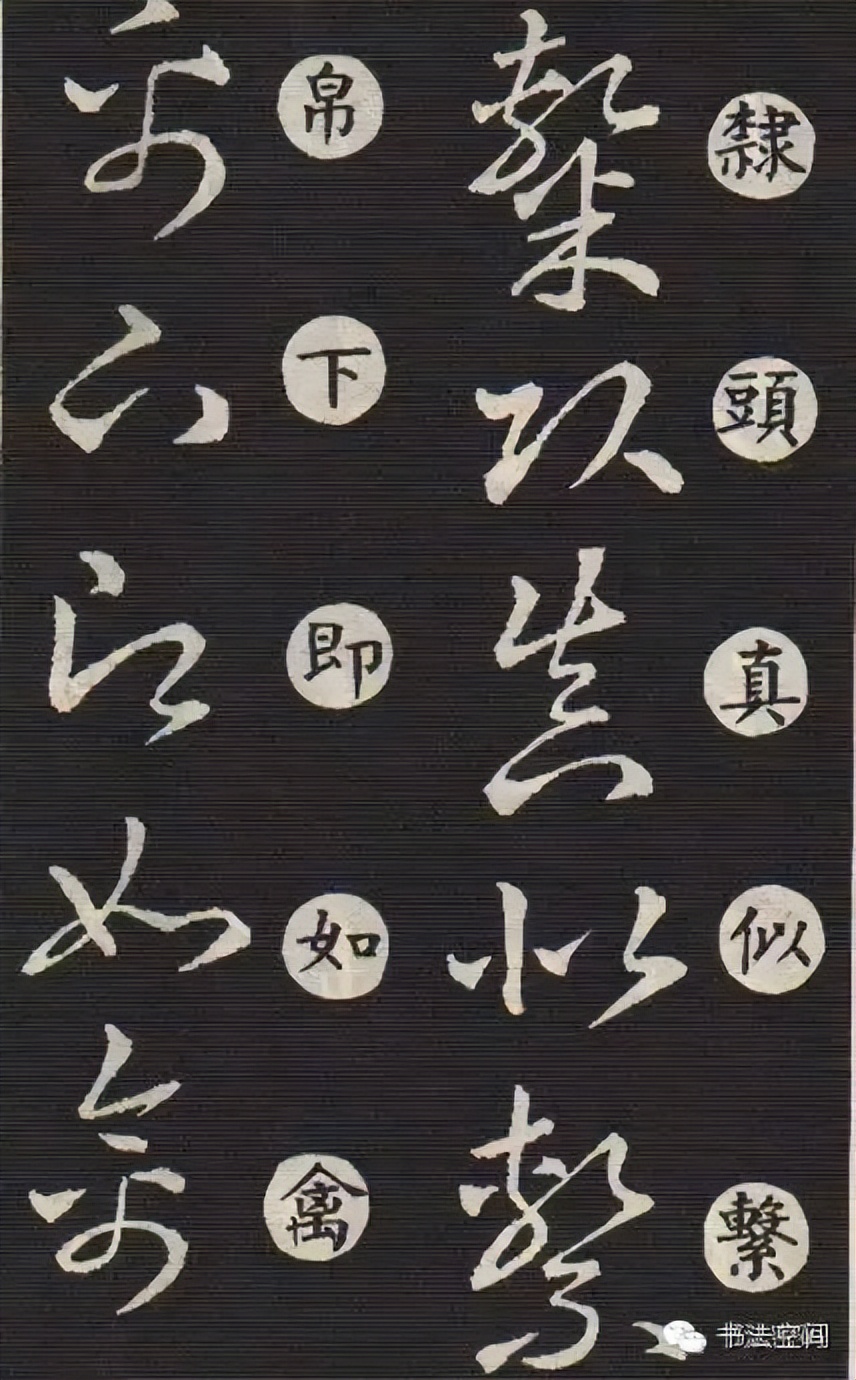 隸頭真似繫
帛下即如禽
书法空间